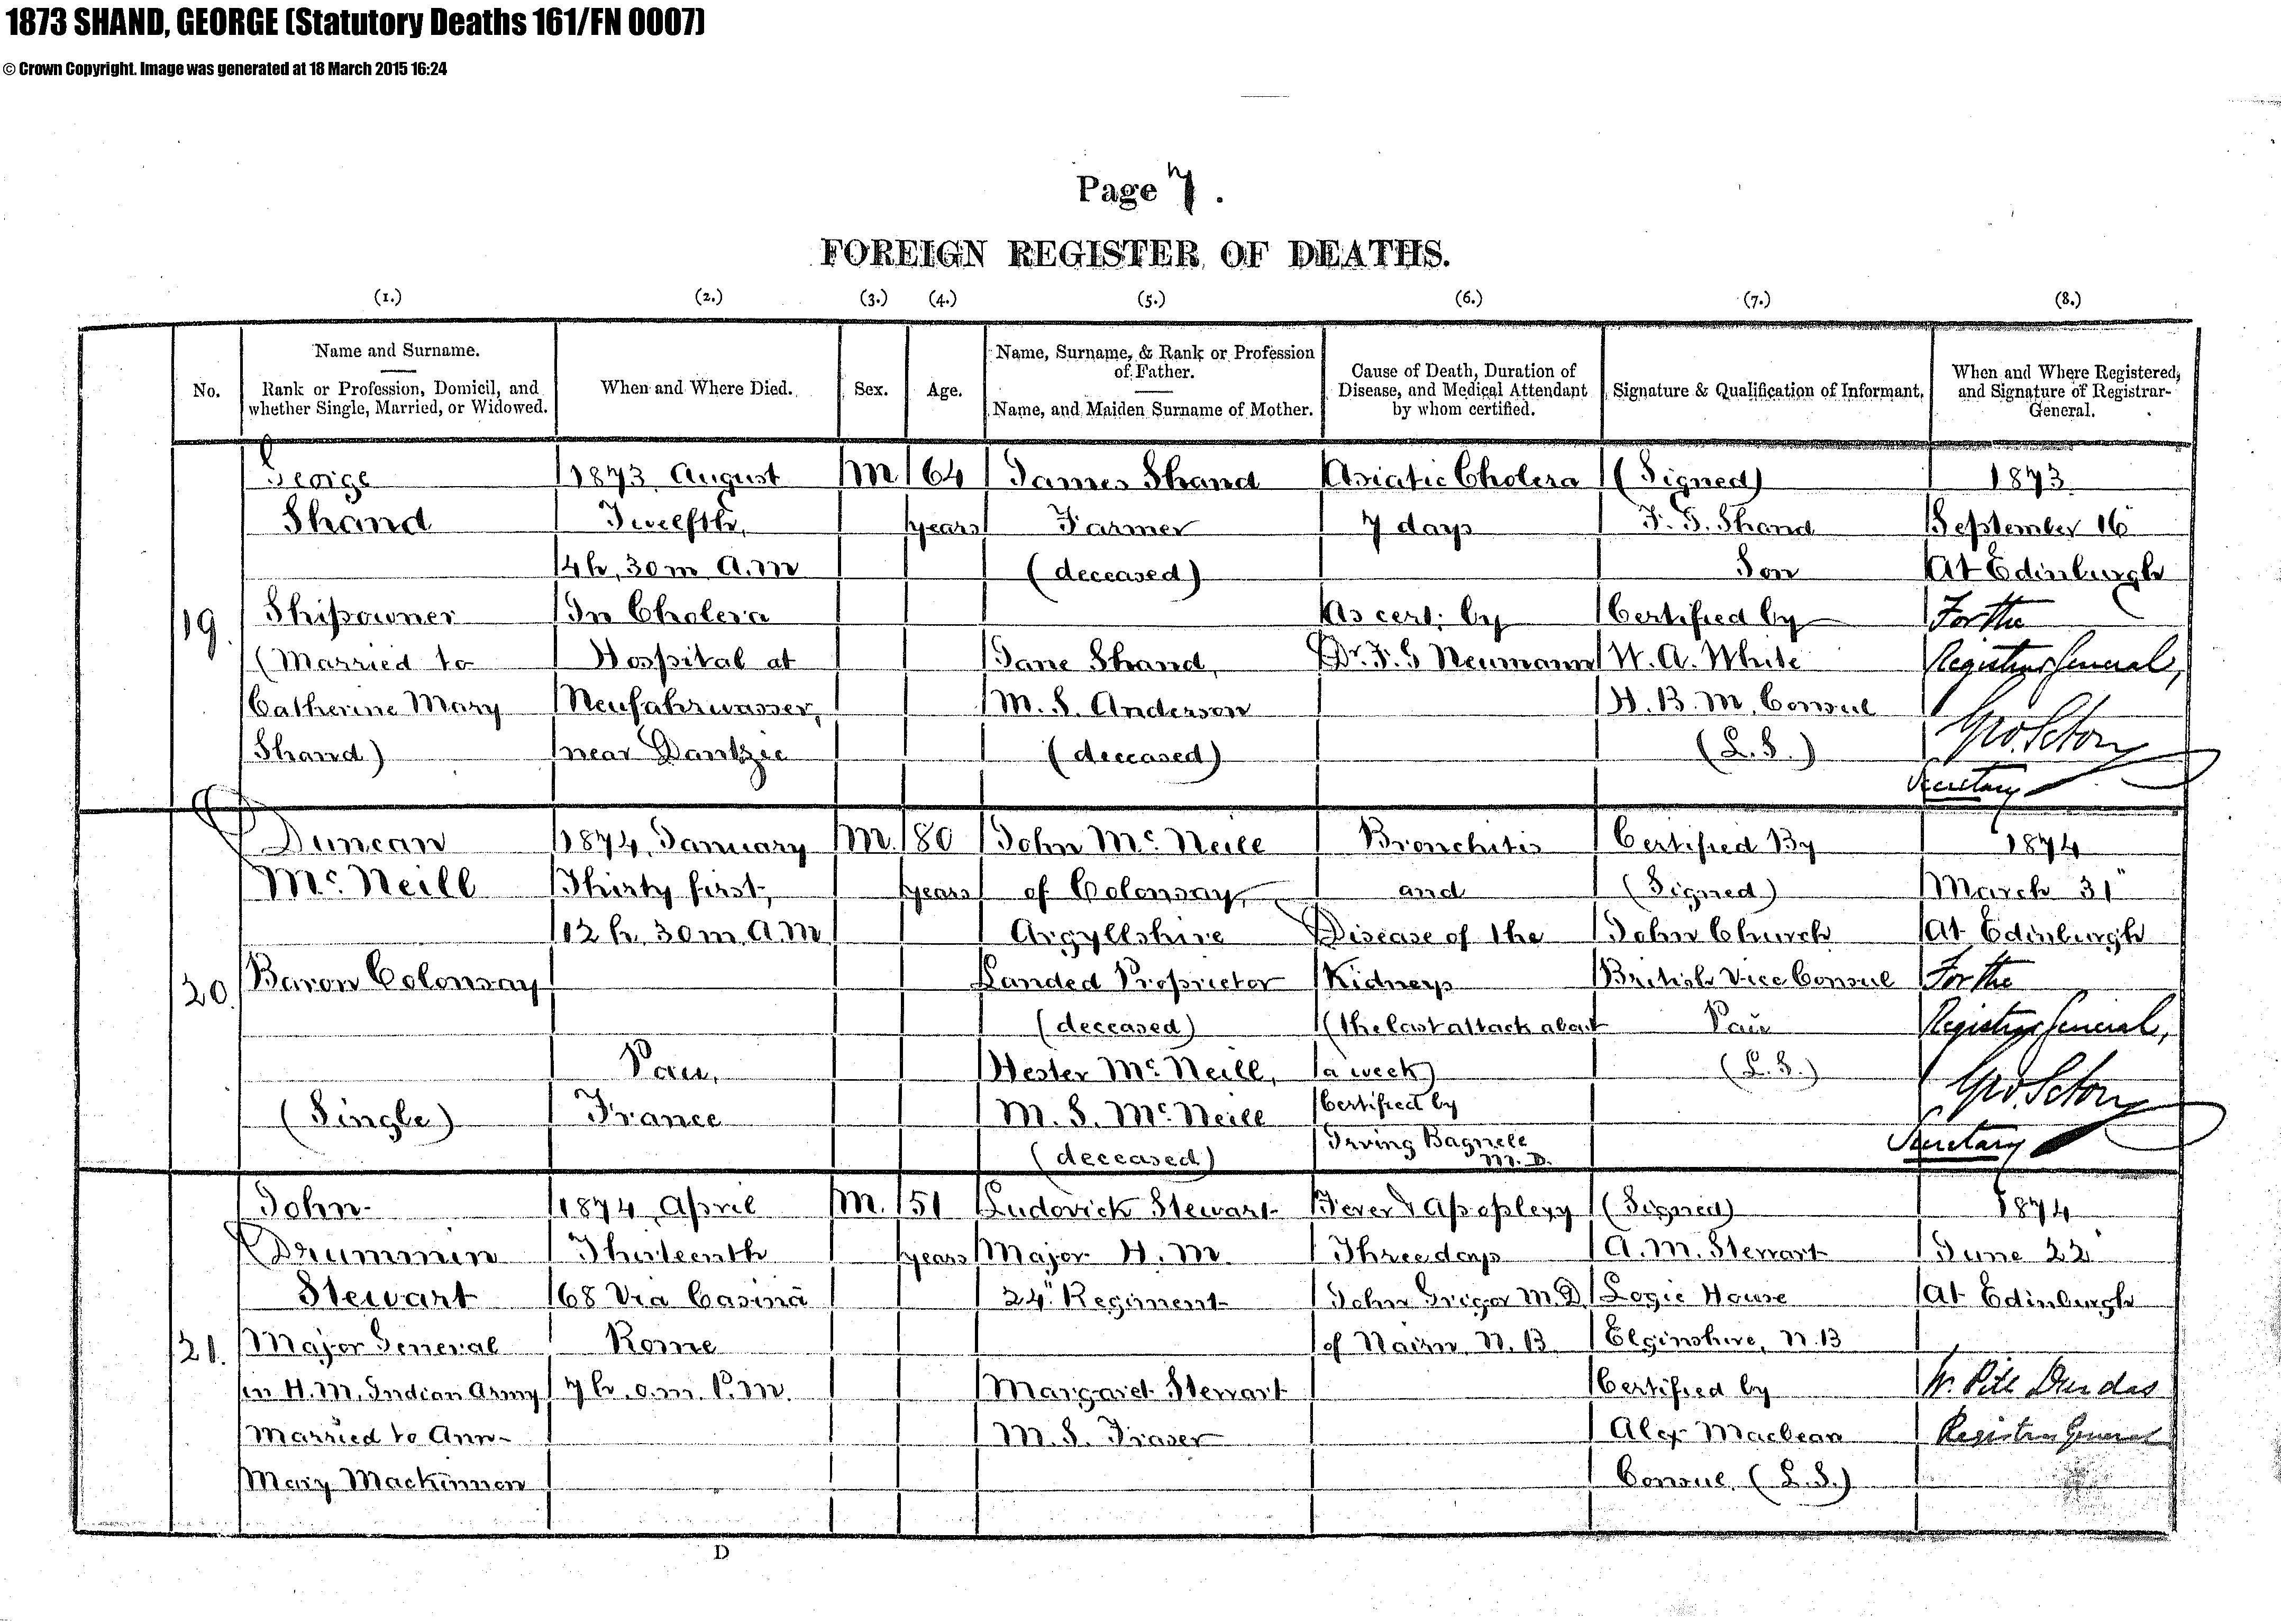 1873 SHAND, GEORGE (Statutory Deaths 161/FN 0007)
© Crown Copyright. Image was generated at 18 March 2015 16:24
Page 7.
FOREIGN REGISTER OF DEATHS.
(1.) (2.) (3.) (4.) (5.) (6.) (7.) (8.)
No.
Name and Surname.
Rank or Profession, Domicil, and
whether Single, Married, or Widowed.
When and Where Died.
Sex.
Age.
Name, Surname, & Rank or Profession
of Father.
Name, and Maiden Surname of Mother.
Cause of Death, Duration of
Disease, and Medical Attendant
by whom certified.
Signature & Qualification of Informant.
When and Where Registered,
and Signature of Registrar-
General.
19.
George
Shand
Shipowner
(Married to
Catherine Mary
Shand)
1873, August
Twelfth,
4 h, 30 m A.M
In Cholera
Hospital at
Neufahrwasser,
near Dantzic
M
64
years
James Shand
Farmer
(deceased)
Jane Shand,
M. S. Anderson
(deceased)
Asiatic Cholera
7 days
As cert: by
Dr. F. G Neumann
(Signed)
F. G. Shand
Son
Certified by
W. A. White
H. B. M. Consul
(L.S.)
1873
September 16"
At Edinburgh
For the
Registrar General,
Geo. Seton
Secretary
20.
Duncan
McNeill
Baron Colonsay
(Single)
1874, January
Thirty first,
12 h, 30 m, A.M
Pau,
France
M.
80
years
John McNeill
of Colonsay,
Argyllshire
Landed Proprietor
(deceased)
Hester McNeill,
M. S. McNeill
(deceased)
Bronchitis
and
Disease of the
Kidneys
(the last attack about
a week)
Certified by
Irving Bagnell
M. D.
Certified By
(Signed)
John Church
British Vice Consul
Pau
(L.S.)
1874
March 31"
At Edinburgh
For the
Registrar General,
Geo. Seton
Secretary
21.
John
Drummin
Stewart
Major General
in H.M. Indian Army
Married to Ann
Mary Mackinnon
1874, April
Thirteenth
68 Via Casinà
Rome
7 h. o.m. P.M.
M.
51
years
Ludovick Stewart
Major H. M.
24" Regiment
Margaret Stewart
M. S. Fraser
Fever & Apoplexy
Three days
John Grigor M.D
of Nairn, N. B.
(Signed)
A. M. Stewart
Logie House
Elginshire, N.B
Certified by
Alex Maclean
Consul (L.S.)
1874
June 22"
At Edinburgh
W. Pitt Dundas
Registrar General
D